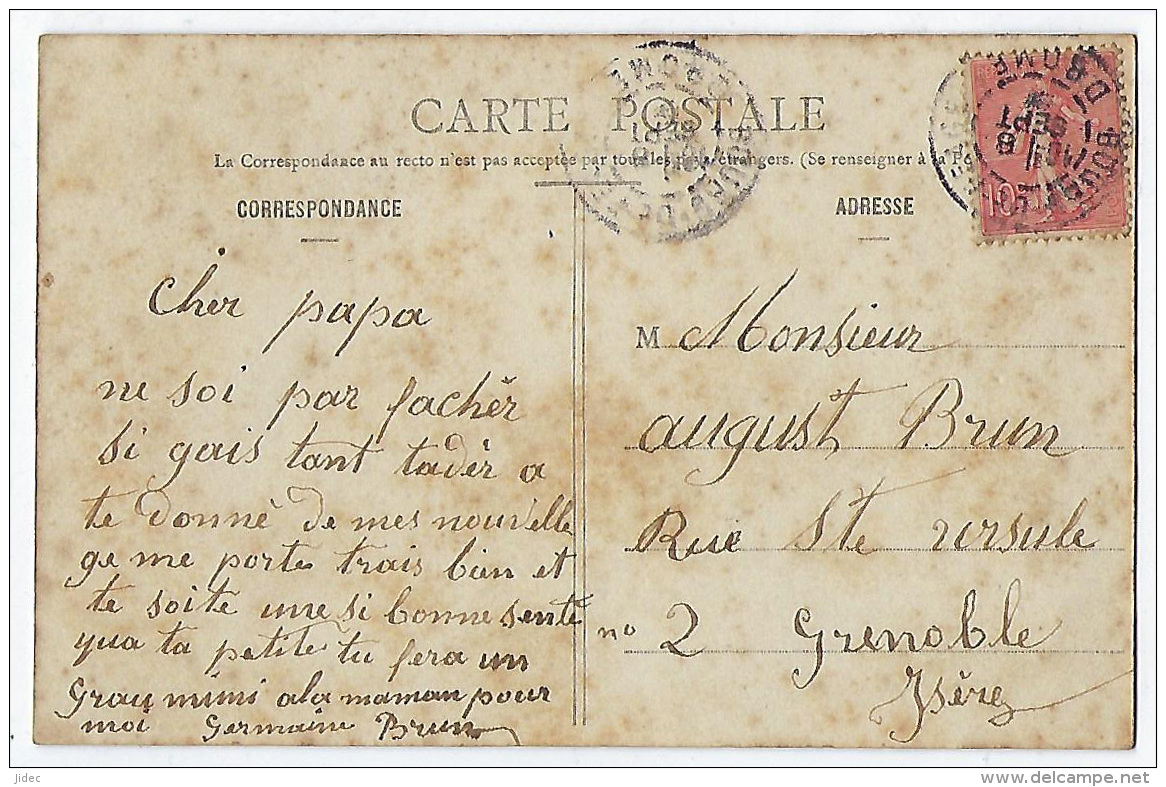 CARTE POSTALE
La Correspondance au recto n'est pas acceptée par tous les pays étrangers. (Se renseigner à la
CORRESPONDANCE
ADRESSE
10
SEPT
Cher papa
ne soi par fachér
si gais tant tadér a
te donné de mes nouvelle
ge me porte trais bien et
te soite une si bonne senté
qua ta petite tu fera un
Grau mimi a la maman pour
moi Germaine Brun
M Monsieur
august Brun
Rue Ste ursule
no 2 Grenoble
Isère
Jidec
delcampe.net